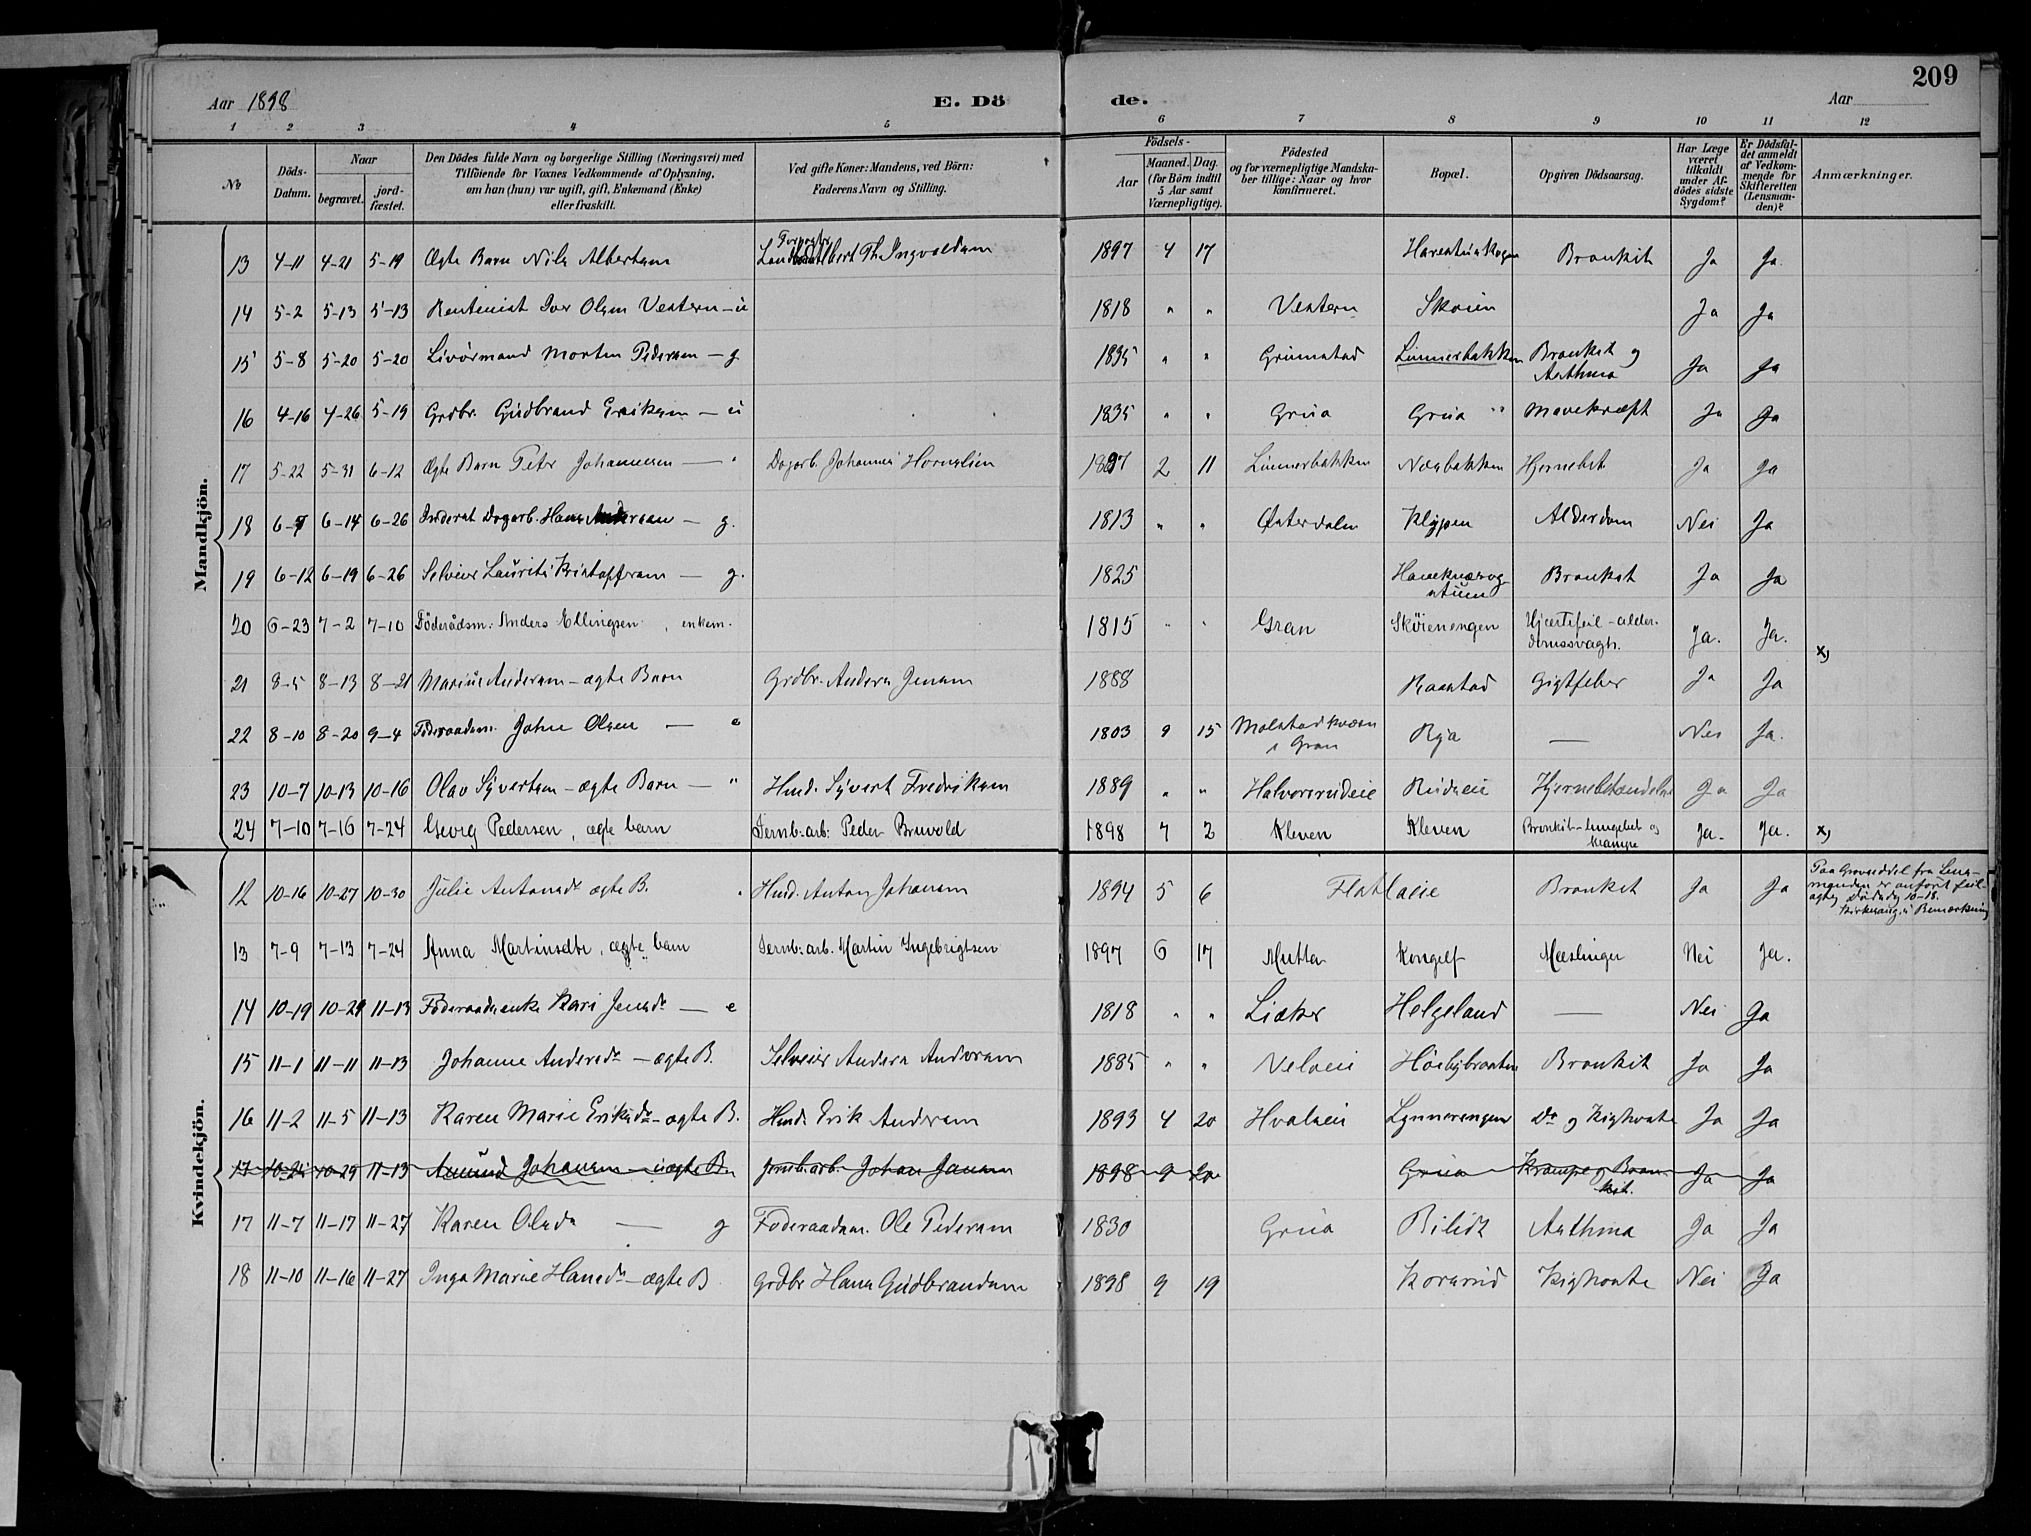 209
Aar 1898 E. Dö
de. Aar
1 2 3 4 5 6 7 8 9 10 11 12
No
Döds-Datum.
Naar
begravet.
jord-fæstet.
Den Dödes fulde Navn og borgerlige Stilling (Næringsvei) med
Tilföiende for Voxnes Vedkommende af Oplysning,
om han (hun) var ugift, gift, Enkemand (Enke)
eller fraskilt.
Ved gifte Koner: Mandens, ved Börn:
Faderens Navn og Stilling.
Födsels-
Aar
Maaned. Dag.
(for Börn indtil
5 Aar samt
Værnepligtige).
Födested
og for værnepligtige Mandska-
ber tillige: Naar og hvor
konfirmeret.
Bopæl.
Opgiven Dödsaarsag.
Har Læge
været
tilkaldt
under Af-
dödes sidste
Sygdom?
Er Dödsfal-
det anmeldt
af Vedkom-
mende for
Skifteretten
(Lensman-
den)?
Anmærkninger.
Mandkjön.
13 4-11 4-21 5-19 Ægte Barn Nils Albertsen Albert Th. Ingvoldsen 1897 4 17 Bronkit Ja Ja
14 5-2 5-13 5-13 Rentenist Iver Olsen Vestern - u 1818 " " Vestern Skøien Ja Ja
15 5-8 5-20 5-20 Livörmand Morten Pedersen - g 1835 " " Grimstad Linnerbakken Bronkit og
Asthma Ja Ja
16 4-16 4-26 5-19 Grdbr. Gudbrand Eriksen - u 1835 " " Grua Grua Mavekræft Ja Ja
17 5-22 5-31 6-12 Ægte Barn Peter Johannesen - " Dagarb. Johannes Hornslien 1897 2 11 Linnerbakken Næsbakken Hjernebet Ja Ja
18 6-7 6-14 6-26 Inderst Dagarb. Hans Andersen - g. 1813 " " Østerdalen Klypen Alderdom Nei Ja
19 6-12 6-19 6-26 Selveier Laurits Kristoffersen - g. 1825 Bronkit Ja Ja
20 6-23 7-2 7-10 Föderådsm: Anders Ellingsen, enkem. 1815 " " Gran Skøienengen Hjertefeil - alder-
domssvagh. Ja. Ja. x)
21 8-5 8-13 8-21 Marius Andersen - ægte Barn Grdbr. Anders Jensen 1888 Raastad Gigtfeber Ja Ja
22 8-10 8-20 9-4 Föderaadsm. John Olsen - e 1803 9 15 Molstadkværn
i Gran Rya — Nei Ja.
23 10-7 10-13 10-16 Olav Syvertsen - ægte Barn - " Husd. Syvert Fredriksen 1889 " " Halvorsrudeie Rudseie Hjernebetændelse Ja Ja
24 7-10 7-16 7-24 Georg Pedersen, ægte barn Jernb.arb: Peder Bruvold 1898 7 2 Kleven Kleven Bronkit - lungebet og
krampe Ja. Ja. x)
Kvindekjön.
12 10-16 10-27 10-30 Julie Antonsdr ægte B. " Husd. Anton Johansen 1894 5 6 Flatlaeie Bronkit Ja Ja Paa Gravseddel fra Lens-
manden er anført feil-
agtig Dödsdag 10-18.
Kirkesang, i Bemærkning
13 7-9 7-13 7-24 Anna Martinsdtr, ægte barn Jernb.-arb. Martin Ingebrigtsen 1897 6 17 Mutta Kongelf Mæslinger Nei Ja.
14 10-19 10-29 11-13 Föderaadsenke Kari Jensdr - e 1818 " " Liaker Helgeland — Nei Ja
15 11-1 11-11 11-13 Johanne Andersdr - ægte B. Selveier Anders Andersen 1885 " " Velseie Høibybraaten Bronkit Ja Ja
16 11-2 11-5 11-13 Karen Marie Eriksdr - ægte B. Husd. Erik Andersen 1893 4 20 Hvalseie Lynnerengen Do og Kighoste Ja Ja
17 10-21 10-29 11-13 Amund Johansen - uægte B. Jernb.arb. Johan Jansen 1898 9 20 Grua Krampe og Bron-
kit. Ja Ja
17 11-7 11-17 11-27 Karen Olsdr — g Föderaadsm. Ole Pedersen 1830 Grua Bilidt Asthma Ja Ja
18 11-10 11-16 11-27 Inga Marie Hansdr - ægte B Grdbr Hans Gudbrandsen 1898 9 19 Korsrud Kighoste Nei Ja